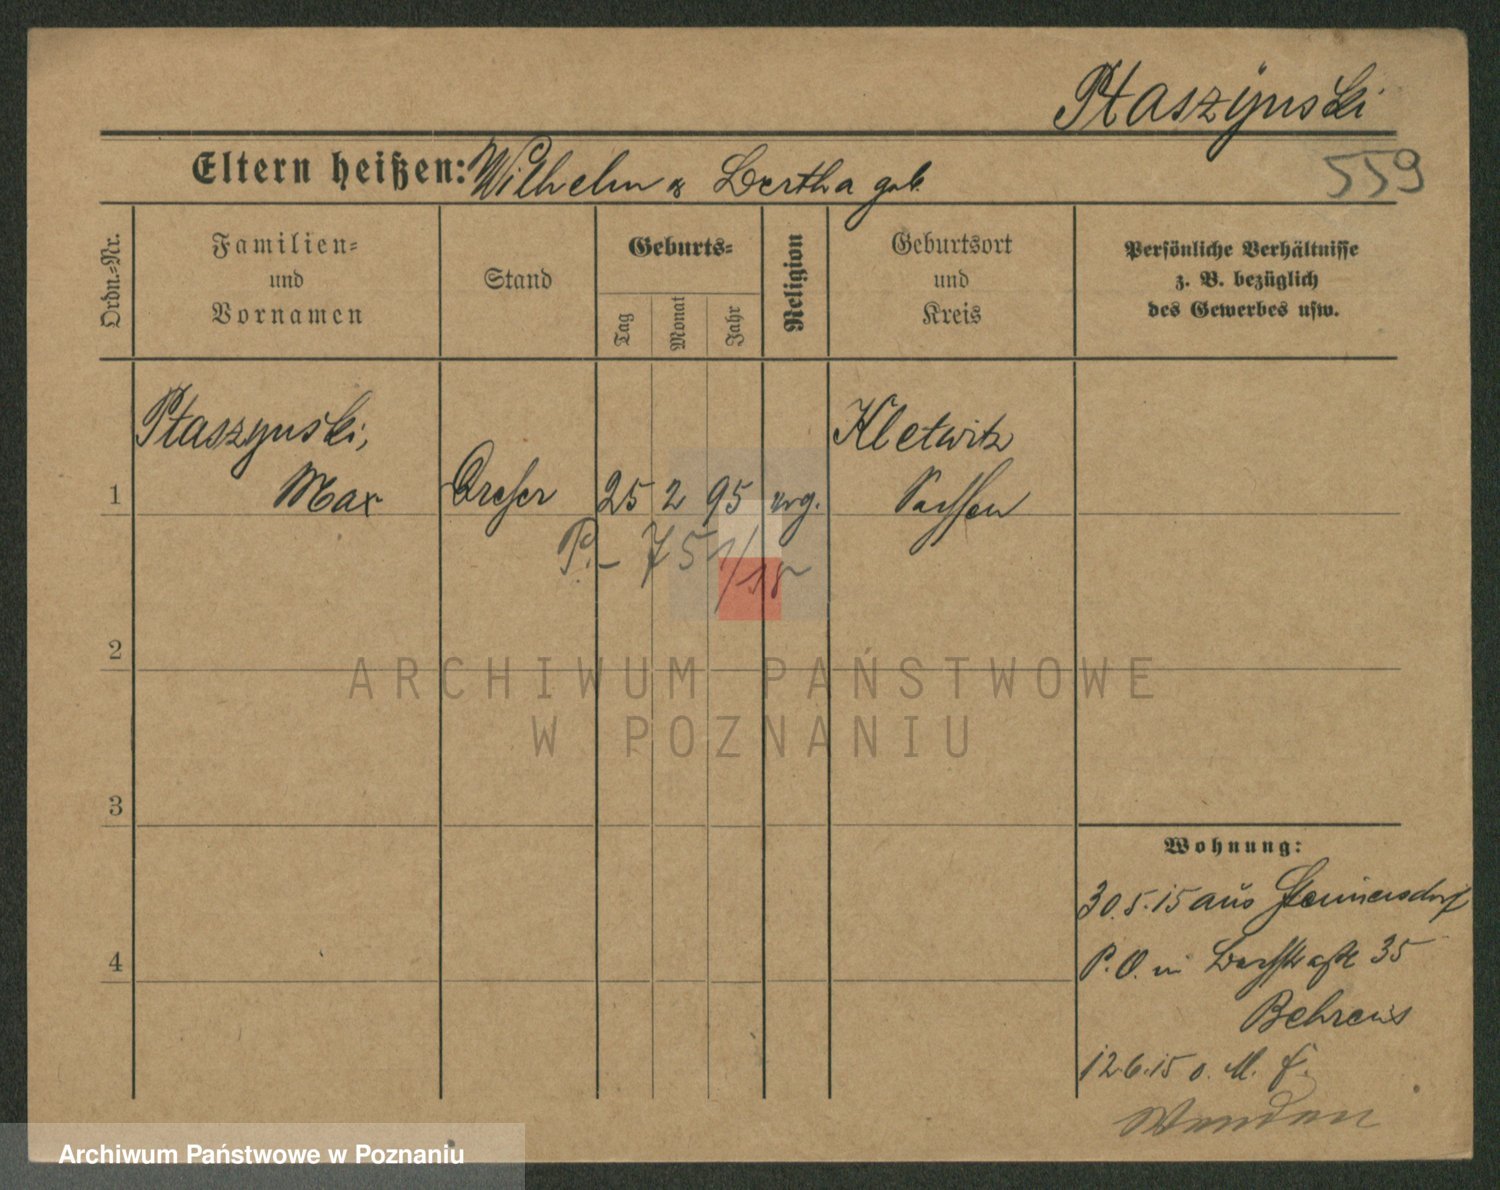 Ptaszÿnski
Eltern heißen: Wilhelm & Bertha geb.
559
Ordn.=Nr.
Familien=
und
Vornamen
Stand
Geburts=
Tag
Monat
Jahr
Religion
Geburtsort
und
Kreis
Persönliche Verhältnisse
z. B. bezüglich
des Gewerbes usw.
Ptaszynski,
Max
Kletwitz
Sachsen
1
Dreher
25 2 95 evg.
P.- 75 1/18
2
ARCHIWUM PAŃSTWOWE
W POZNANIU
3
4
Wohnung:
30.5.15 aus
P. O. 35
Behrens
12.6.15 o. M. f.
Archiwum Państwowe w Poznaniu